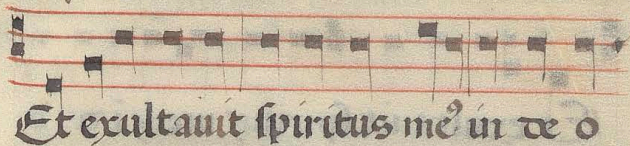 Et exultauit ſpiritus meꝰ in de o